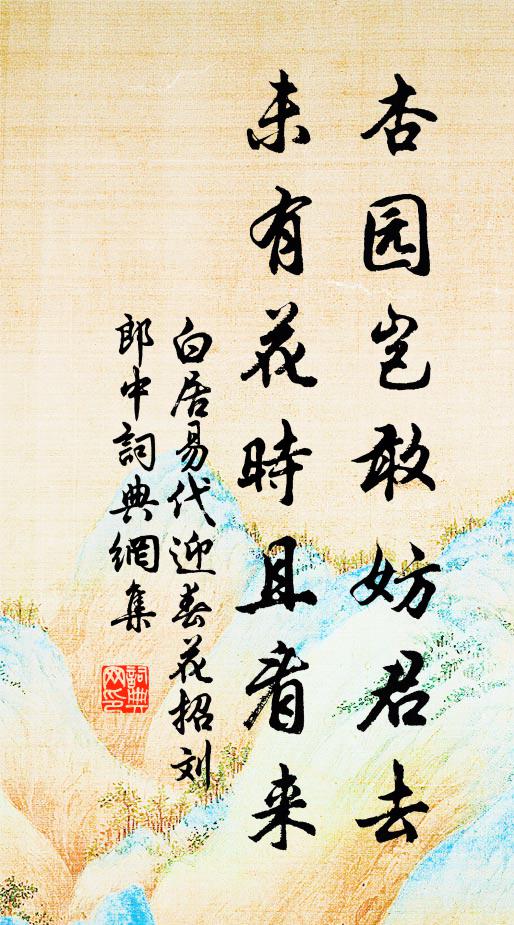 杏园岂敢妨君去
未有花時且看来
白居易代迎春花招刘
郎中詞典網集
詞典
网印